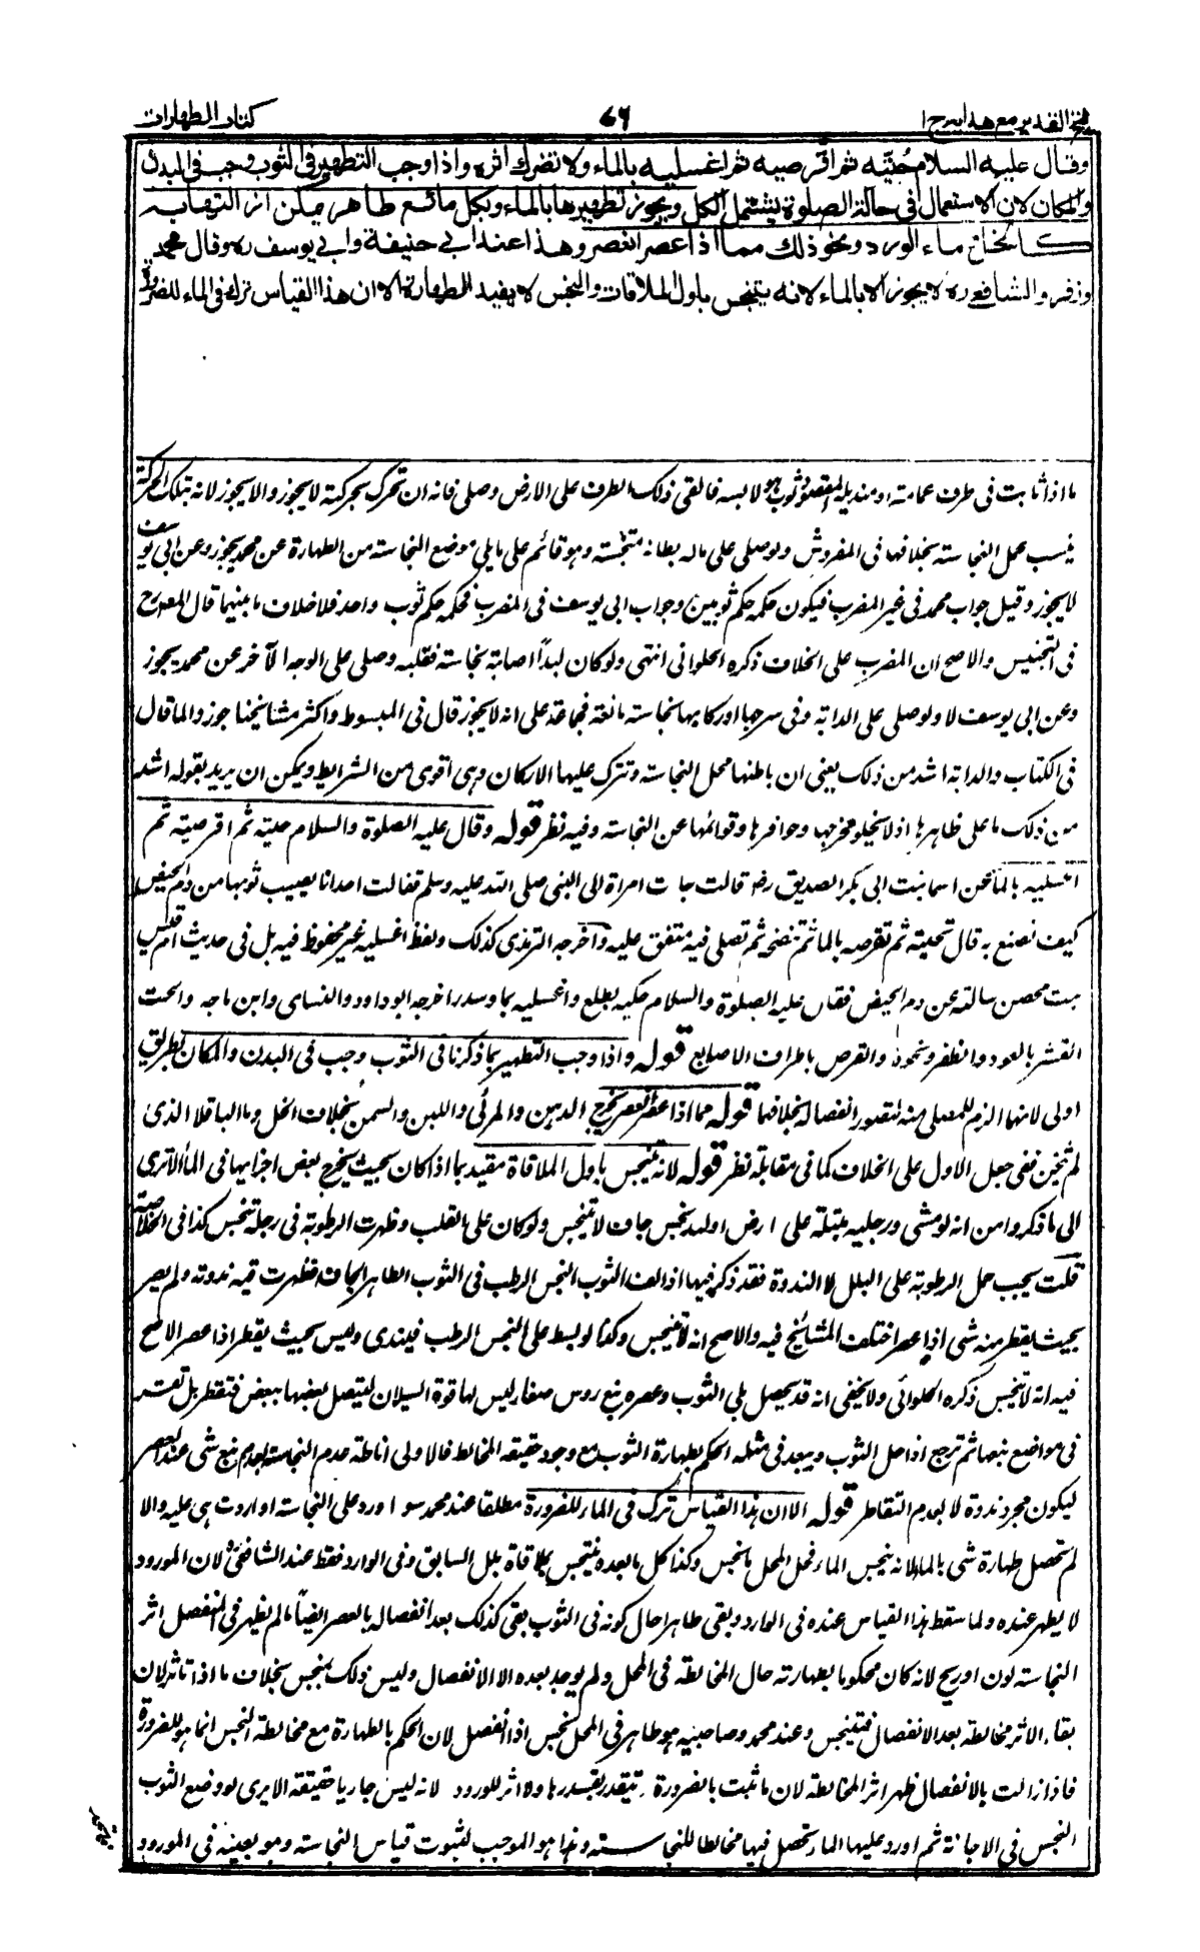 فتح القدير مع هدايه ج ١
٧٦
كتاب الطهارات
وقال عليه السلام حُتّيه ثم اقرصيه ثم اغسليه بالماء ولا يضرك اثره واذا وجب التطهير فى الثوب وجب فى البدن
والمكان لان الاستعمال فى حالة الصلوة يشتمل الكل ويجوز تطهيرها بالماء وبكل مائع طاهر يمكن ازالتها به
كالخل وماء الورد ونحو ذلك مما اذا عصر انعصر وهذا عند ابي حنيفة وابي يوسف ره وقال محمد
وزفر والشافعي ره لا يجوز الا بالماء لانه يتنجس باول الملاقات والنجس لا يفيد الطهارة الا ان هذا القياس ترك فى الماء للضرورة
ما اذا ثابت فى طرف عمامته او منديله المقصود ثوب هو لابسه فالقى ذلك الطرف على الارض وصلى فانه ان تحرك بحركته لا يجوز والا يجوز لانه بتلك الحركة
ينسب لحمل النجاسة بخلافها فى المفروش ولو صلى على ماله بطانة متنجسة وهو قائم على ما يلى موضع النجاسة من الطهارة عن محمد يجوز وعن ابى يوسف
لا يجوز وقيل جواب محمد فى غير المضرب فيكون حكمه حكم ثوبين وجواب ابى يوسف فى المضرب فحكمه حكم ثوب واحد فلا خلاف ما بينهما قال المصرح
فى التجنيس والاصح ان المضرب على الخلاف ذكره الحلوانى انتهى ولو كان لبداً اصابته نجاسة فقلبه وصلى على الوجه الآخر عن محمد يجوز
وعن ابى يوسف لا ولو صلى على الدابة وفى سرجها او ركابيها نجاسة مانعة فجماعة على انه لا يجوز قال فى المبسوط واكثر مشائخنا جوزوا لما قال
فى الكتاب والدابة اشد من ذلك يعنى ان باطنها محل النجاسة وتترك عليها الاركان وهى اقوى من الشرايط ويمكن ان يريد بقوله اشد
من ذلك ما على ظاهرها اذ لا يخلو مخرجها وحوافرها وقوائمها عن النجاسة وفيه نظر قوله وقال عليه الصلوة والسلام حتيه ثم اقرصيه ثم
اغسليه بالماء عن اسما بنت ابى بكر الصديق رضه قالت جاءت امراة الى النبى صلى الله عليه وسلم فقالت احدانا يصيب ثوبها من دم الحيض
كيف تصنع به قال تحتيه ثم تقرصه بالماء ثم تنضحه ثم تصلى فيه متفق عليه واخرجه الترمذى كذلك ولفظ اغسليه غير محفوظ فيه بل فى حديث ام قيس
بنت محصن سالته عن دم الحيض فقال عليه الصلوة والسلام حكيه بضلع واغسليه بما وسدر اخرجه ابو داود والنساى وابن ماجه والحت
القشر بالعود والظفر ونحوه والقرص باطراف الاصابع قوله واذا وجب التطهير بما ذكرنا فى الثوب وجب فى البدن والمكان بطريق
اولى لانهما الزم للمصلى منه لتصور انفصاله بخلافهما قوله مما اذا عصر انعصر يخرج الدهن والمرئى واللبن والسمن بخلاف الخل وماء الباقلا الذى
لم يثخن ففى جعل الاول على الخلاف كما فى مقابلة نظر قوله لانه تنجس باول الملاقاة مقيد بما اذا كان بحيث يخرج بعض اجزايها فى الماء الا ترى
الى ما ذكروا من انه لو مشى ورجليه مبتلة على ارض او لبد نجس جاف لا تنجس ولو كان على القلب وظهرت الرطوبة فى رجله تنجس كذا فى الخلاصة
قلت يجب حمل الرطوبة على البلل لا الندوة فقد ذكر فيها اذا لف الثوب النجس الرطب فى الثوب الطاهر الجاف فظهرت فيه ندوته ولم يصر
بحيث يقطر منه شى اذا عصر اختلف المشائخ فيه والاصح انه لا تنجس وكذا لو بسط على النجس الرطب فيندى وليس بحيث يقطر اذا عصر الاصح
فيه انه لا تنجس ذكره الحلوائى ولا يخفى انه قد يحصل بلى الثوب وعصره نبع روس صغار ليس لها قوة السيلان ليتصل بعضها ببعض فتقطر بل تقر
فى مواضع نبعها ثم ترجع اذا حل الثوب ويبعد فى مثله الحكم بطهارة الثوب مع وجود حقيقة المخالط فالاولى اناطة عدم النجاسة بعدم نبع شى عند العصر
ليكون مجرد ندوة لا بعدم التقاطر قوله الا ان هذا القياس ترك فى الماء للضرورة مطلقا عند محمد سوا اورد على النجاسة او اردت هى عليه والا
لم تحصل طهارة شى بالماء لانه ينجس الماء فحل المحل بالنجس وكذا كل ما بعده تنجس بملاقاة بلل السابق وفى الوارد فقط عند الشافعى لان المورود
لا يطهر عنده ولما سقط هذا القياس عنده فى الوارد وبقى طاهرا حال كونه فى الثوب بقى كذلك بعد انفصاله بالعصر ايضاً مالم يظهر فى المنفصل اثر
النجاسة لون او ريح لانه كان محكوما بطهارته حال المخالطة فى المحل ولم يوجد بعده الا الانفصال وليس ذلك بمنجس بخلاف ما اذا تاثر لان
بقاء الاثر مخالطة بعد الانفصال فتنجس وعند محمد وصاحبيه هو طاهر فى المحل نجس اذا انفصل لان الحكم بالطهارة مع مخالطة النجس انما هو للضرورة
فاذا زالت بالانفصال ظهر اثر المخالطة لان ما ثبت بالضرورة يتقدر بقدرها ولا اثر للورود لانه ليس جاريا حقيقة الا يرى لو وضع الثوب
النجس فى الاجانة ثم اورد عليها الماء تحصل فيها مخالطا للنجاسة وهذا هو الموجب لثبوت قياس النجاسة وهو بعينه فى المورود